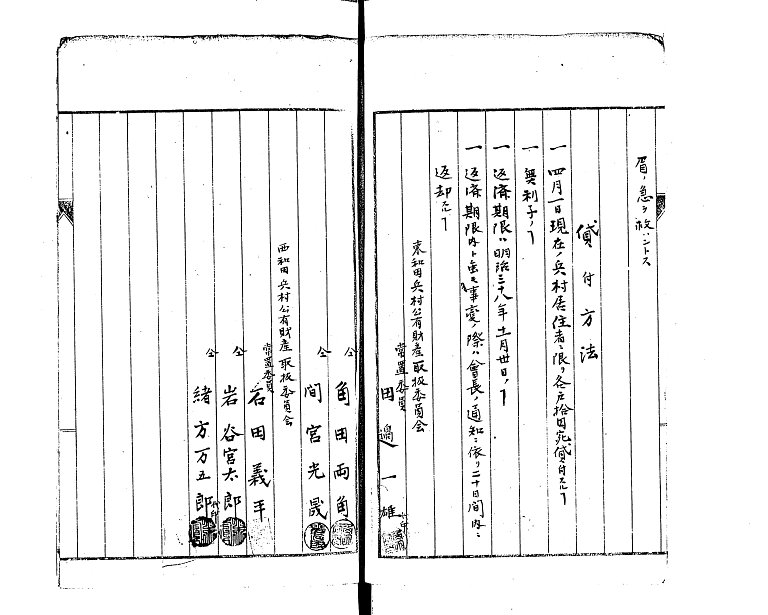 眉ノ急ヲ救ハントス
貸付方法
一 四月一日現在ノ兵村居住者ニ限リ各戸拾円宛貸付スルヿ
一 無利子ノヿ
一 返済期限ハ明治三十八年十一月卅日ノヿ
一 返済期限内ト虽モ事変ノ際ハ會長ノ通知ニ依リ二十日間内ニ
返却スルヿ
東和田兵村公有財産取扱委員会
常置委員
田邉一雄
仝 角田両角
仝 間宮光晟
西和田兵村公有財産取扱委員会
常置委員
石田義平
仝 岩谷宮太郎
仝 緒方万五郎
代印